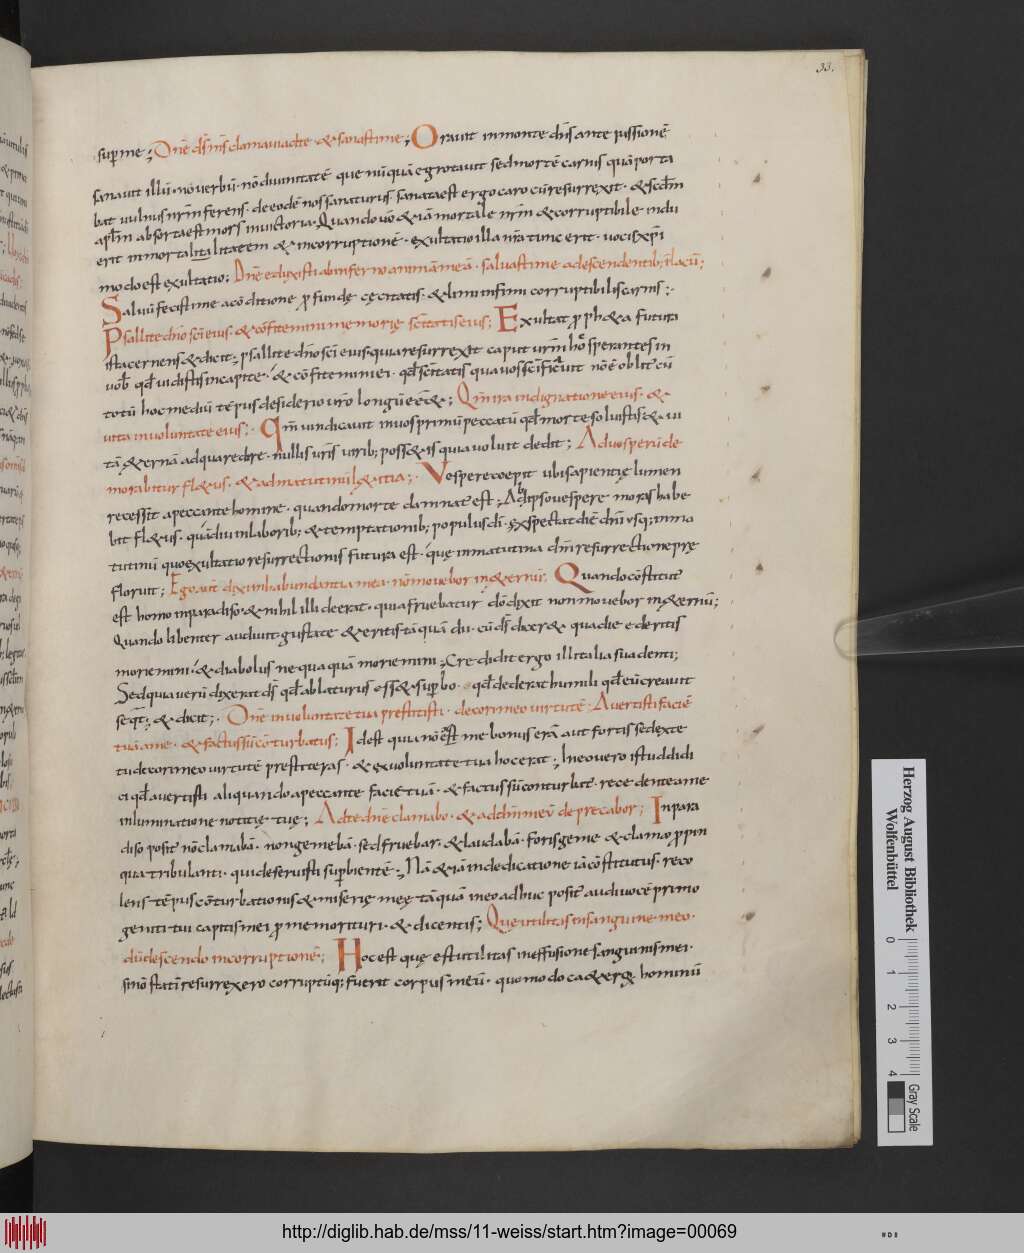 33.
sup me; Dñe dš mš clamaui adte & sanasti me; Orauit inmonte dñs ante passionē
sanauit illū. nō uerbū. nō diuinitatē que nūquā egrotauit sed mortē carnis quā porta
bat uulnus nr̄m ferens. de eodē nos sanaturus. sanata est ergo caro cū resurrexit. & scdm
aplm absorta est mors inuictoria. Quando uō & iā mortale nr̄m & corruptibile indu
erit inmortalitalitatem & incorruptionē. exultatio illa nr̄a tunc erit. uocis xp̄i
modo est exultatio; Dñe eduxisti abinferno animā meā. saluasti me adescendentib; ī lacū;
Saluū fecisti me acōditione profundę cęcitatis. & limi infimi corruptibilis carnis;
Psallite dño sc̄i eius. & cōfitemini memorię sc̄itatis eius; Exultat proph&a futura
ista cernens & dicit; psallite dño sc̄i eius quia resurrexit caput ur̄m hoc sperantes in
uob qd uidistis incapite. & cōfitemini ei. qd sc̄itatis qua uos sc̄ificauit nō ē oblit' cū
totū hoc mediū tēpus desiderio uro longū eē&; Qm̄ ira indignatione eius. &
uita inuoluntate eius; Qm̄ uindicauit inuos primū peccatū qd morte soluistis & ui
tā &ernā ad quā redire. nullis ur̄is uirib; poss&is quia uoluit dedit; Aduesperū de
morabitur fl&us. & admatutinū l&itia; Vespere coepit ubi sapientię lumen
recessit apeccante homine. quando morte damnat' est; Abipso uespere moras habe
bit fl&us. quādiu inlaborib; & temptationib; populus dī. exspectat diē dñi usq; inma
tutinū quo exultatio resurrectionis futura est. quę inmatutina dñi resurrectione prę
floruit; Ego aūt dixi inhabundantia mea. nō mouebor in &ernū; Quando cōstitut'
est homo inparadiso. & nihil illi deerat. quia fruebatur dō dixit non mouebor in &ernū;
Quando libenter audiuit. gustate & eritis tāquā dii. cū dš dixer& qua die ederitis
moriemini. & diabolus nequaquā moriemini; Credidit ergo illi talia suadenti;
Sed quia uerū dixerat dš qd ablaturus ess& supbo. qd dederat humili qd eū creauit
seqt; & dicit; Dñe inuoluntate tua prestitisti. decori meo uirtutē. Auertisti faciē
tuā ame. & factus sū cōturbatus; Idest quia nō est me bonus erā aut fortis sed exte
tu decori meo uirtutē prestiteras. & exuoluntate tua hoc erat; In eo uero istud didi
ci qd auertisti aliquando apeccante faciē tuā. & factus sū conturbat'. recedente ame
inluminatione notitię tuę; Adte dñe clamabo. & addm̄ meū deprecabor; In para
diso posit' nō clamabā. non gemebā. sed fruebar. & laudabā. foris geme & clamo ppin
qua tribulanti. qui deseruisti supbientē; Nā & iā indedicatione iā cōstitutus reco
lens tēpus cōturbationis & miserię meę tāquā ineo adhuc posit' audi uocē primo
geniti tui capitis mei pro me morituri. & dicentis; Que utilitas insanguine meo.
dū descendo incorruptionē; Hoc est quę est utilitas ineffusione sanguinis mei.
si nō statī resurrexero corruptūq; fuerit corpus meū. quomodo ca&erę hominū
Herzog August Bibliothek
Wolfenbüttel
0
1
2
3
4
Gray Scale
http://diglib.hab.de/mss/11-weiss/start.htm?image=00069